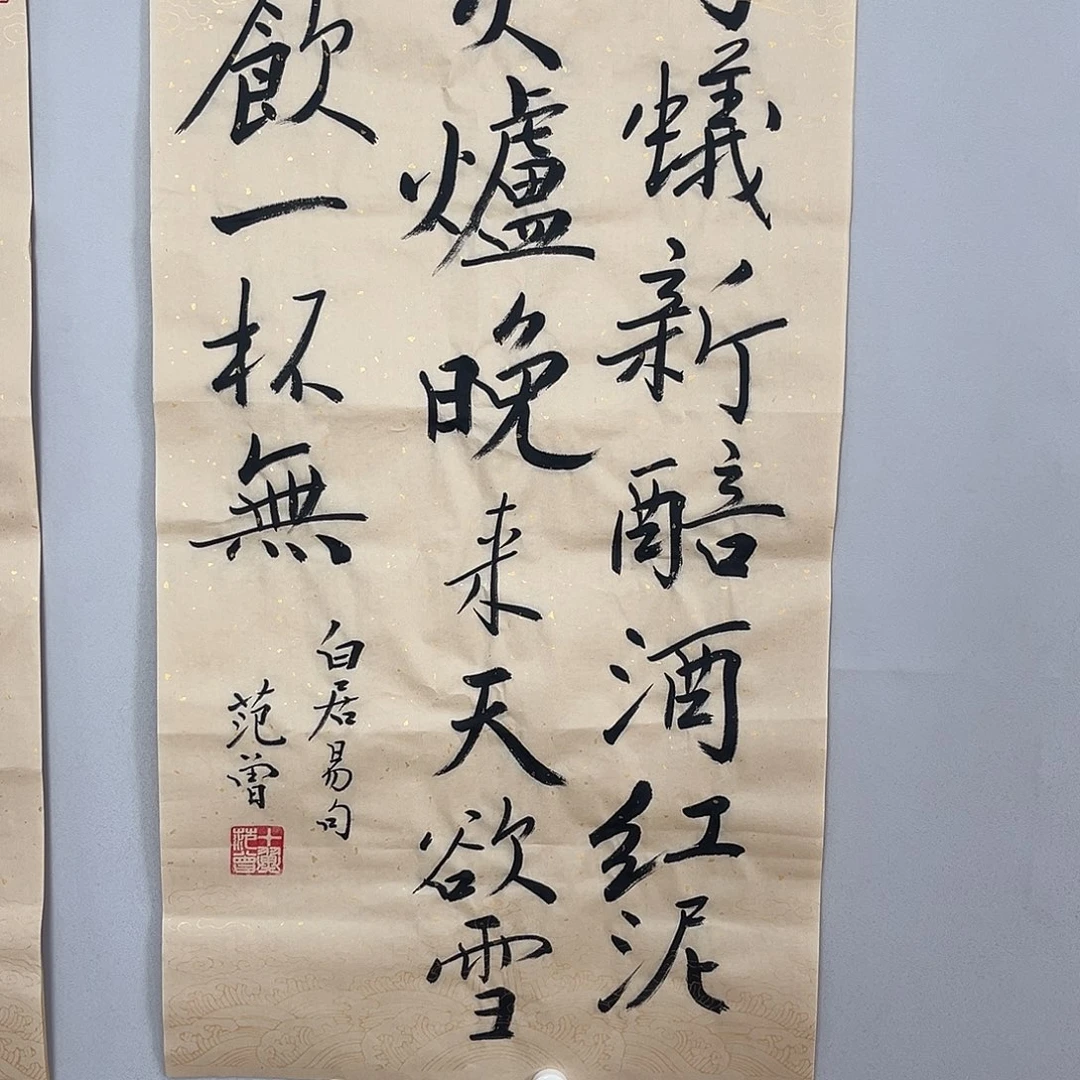 蟻新醅酒红泥
火爐晚来天欲雪
飲一杯無
白居易句
范曾
十翼
范曾